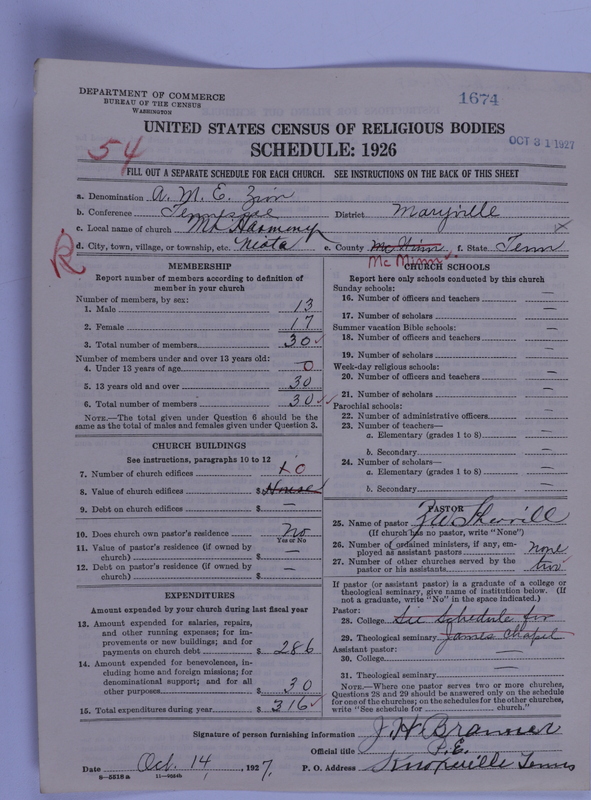 DEPARTMENT OF COMMERCE
BUREAU OF THE CENSUS
WASHINGTON
1674
UNITED STATES CENSUS OF RELIGIOUS BODIES
SCHEDULE: 1926
OCT 31 1927
54
FILL OUT A SEPARATE SCHEDULE FOR EACH CHURCH. SEE INSTRUCTIONS ON THE BACK OF THIS SHEET
a. Denomination A. M. E. Zion
b. Conference Tennessee District Maryville
c. Local name of church Mt Harmony x
d. City, town, village, or township, etc. Niota e. County McMinn f. State Tenn
R
McMinn
MEMBERSHIP
Report number of members according to definition of
member in your church
Number of members, by sex:
1. Male 13
2. Female 17
3. Total number of members 30
Number of members under and over 13 years old:
4. Under 13 years of age 0
5. 13 years old and over 30
6. Total number of members 30
NOTE.—The total given under Question 6 should be the
same as the total of males and females given under Question 3.
CHURCH BUILDINGS
See instructions, paragraphs 10 to 12
7. Number of church edifices 0
8. Value of church edifices $
9. Debt on church edifices $ —
10. Does church own pastor's residence No
Yes or No
11. Value of pastor's residence (if owned by
church) $ —
12. Debt on pastor's residence (if owned by
church) $ —
EXPENDITURES
Amount expended by your church during last fiscal year
13. Amount expended for salaries, repairs,
and other running expenses; for im-
provements or new buildings; and for
payments on church debt $ 286
14. Amount expended for benevolences, in-
cluding home and foreign missions; for
denominational support; and for all
other purposes $ 30
15. Total expenditures during year $ 316
CHURCH SCHOOLS
Report here only schools conducted by this church
Sunday schools:
16. Number of officers and teachers —
17. Number of scholars —
Summer vacation Bible schools:
18. Number of officers and teachers —
19. Number of scholars —
Week-day religious schools:
20. Number of officers and teachers —
21. Number of scholars —
Parochial schools:
22. Number of administrative officers —
23. Number of teachers—
a. Elementary (grades 1 to 8) —
b. Secondary —
24. Number of scholars—
a. Elementary (grades 1 to 8) —
b. Secondary —
PASTOR
25. Name of pastor Sherrill
(If church has no pastor, write "None")
26. Number of ordained ministers, if any, em-
ployed as assistant pastors None
27. Number of other churches served by the
pastor or his assistants
If pastor (or assistant pastor) is a graduate of a college or
theological seminary, give name of institution below. (If
not a graduate, write "No" in the space indicated.)
Pastor:
28. College See Schedule for
29. Theological seminary James Chapel
Assistant pastor:
30. College —
31. Theological seminary —
NOTE.—Where one pastor serves two or more churches,
Questions 28 and 29 should be answered only on the schedule
for one of the churches; on the schedules for the other churches,
write "See schedule for church."
Signature of person furnishing information J. H. Branner
Official title P. E.
Date Oct. 14, 1927. P. O. Address Knoxville Tenn
8-5518a